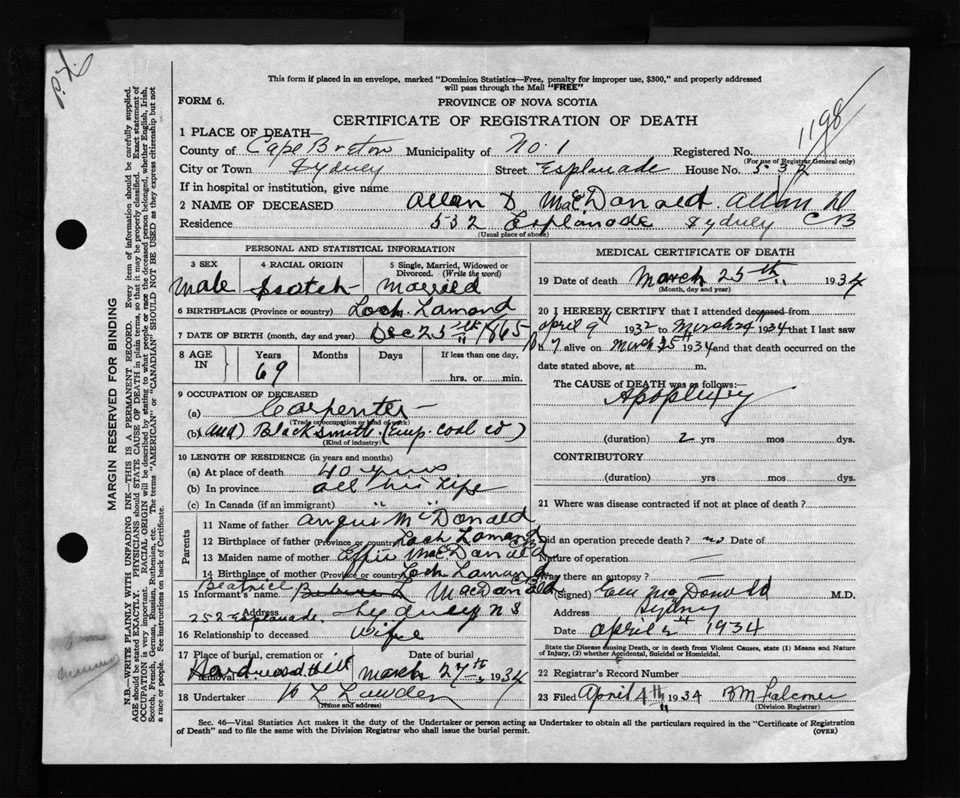 This form if placed in an envelope, marked "Dominion Statistics—Free, penalty for improper use, $300," and properly addressed
will pass through the Mail "FREE"
FORM 6.
PROVINCE OF NOVA SCOTIA
CERTIFICATE OF REGISTRATION OF DEATH
1198
1 PLACE OF DEATH—
County of Cape Breton Municipality of No. 1 Registered No.
(For use of Registrar General only)
City or Town Sydney Street Esplanade House No. 532
If in hospital or institution, give name
2 NAME OF DECEASED Allan D. MacDonald. Allan D.
Residence 532 Esplanade Sydney CB
(Usual place of abode)
PERSONAL AND STATISTICAL INFORMATION
3 SEX 4 RACIAL ORIGIN 5 Single, Married, Widowed or Divorced. (Write the word)
Male Scotch Married
6 BIRTHPLACE (Province or country) Loch Lamond
7 DATE OF BIRTH (month, day and year) Dec 25th 1865
8 AGE IN Years Months Days If less than one day,
69 hrs. or min.
9 OCCUPATION OF DECEASED
(a) Carpenter
(Trade or occupation or kind of work)
(b) and Blacksmith. (Emp. Coal Co)
(Kind of industry)
10 LENGTH OF RESIDENCE (in years and months)
(a) At place of death 40 years
(b) In province all his life
(c) In Canada (if an immigrant) " " "
Parents
11 Name of father Angus McDonald
12 Birthplace of father (Province or country) Loch Lamond CB
13 Maiden name of mother Effie MacDanald
14 Birthplace of mother (Province or country) Loch Lamond CB
15 Informant's name Beatrice MacDanald
Address 252 Esplanade. Sydney N S
16 Relationship to deceased Wife
17 Place of burial, cremation or removal Date of burial
Hardwood Hill March 27th 1934
18 Undertaker
(Name and address)
MEDICAL CERTIFICATE OF DEATH
19 Date of death March 25th 1934
(Month, day and year)
20 I HEREBY CERTIFY that I attended deceased from
April 9 1932 to March 24 1934 that I last saw
h alive on March 25 1934 and that death occurred on the
date stated above, at m.
The CAUSE OF DEATH was as follows:—
Apoplexy
(duration) 2 yrs mos dys.
CONTRIBUTORY
(duration) yrs mos dys.
21 Where was disease contracted if not at place of death?
Did an operation precede death? no Date of
Nature of operation —
Was there an autopsy?
(Signed) McDonald M.D.
Address Sydney
Date April 2 1934
State the Disease causing Death, or in deaths from Violent Causes, state (1) Means and Nature of Injury, (2) whether Accidental, Suicidal or Homicidal.
22 Registrar's Record Number
23 Filed April 4th 1934 B M Falconer
(Division Registrar)
Sec. 46—Vital Statistics Act makes it the duty of the Undertaker or person acting as Undertaker to obtain all the particulars required in the "Certificate of Registration
of Death" and to file the same with the Division Registrar who shall issue the burial permit.
(OVER)
MARGIN RESERVED FOR BINDING
N.B.—WRITE PLAINLY WITH UNFADING INK—THIS IS A PERMANENT RECORD. Every item of information should be carefully supplied.
AGE should be stated EXACTLY. PHYSICIANS should STATE CAUSE OF DEATH in plain terms, so that it may be properly classified. Exact statement of
OCCUPATION is very important. RACIAL ORIGIN will be described by stating to what people or race the deceased person belonged, whether English, Irish,
Scotch, French, German, Russian, Ruthenian, etc. The terms "AMERICAN" or "CANADIAN" SHOULD NOT BE USED as they express citizenship but not
a race or people. See instructions on back of Certificate.